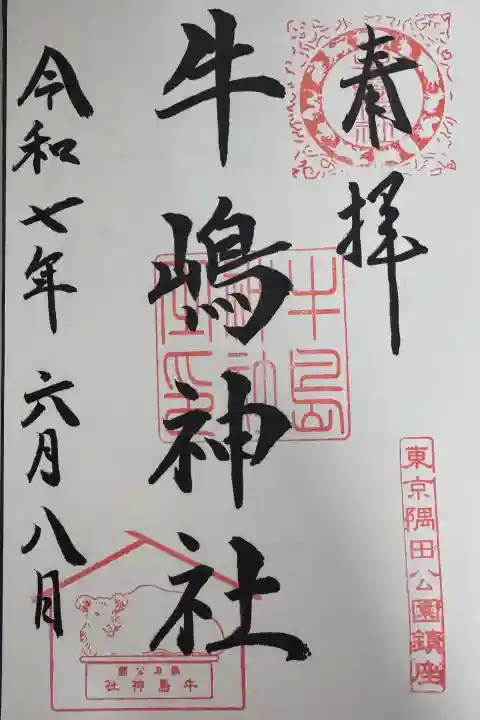 奉拝
東京隅田公園鎮座
牛嶋神社
牛島
神社
令和七年 六月八日
隅田公園
牛島神社